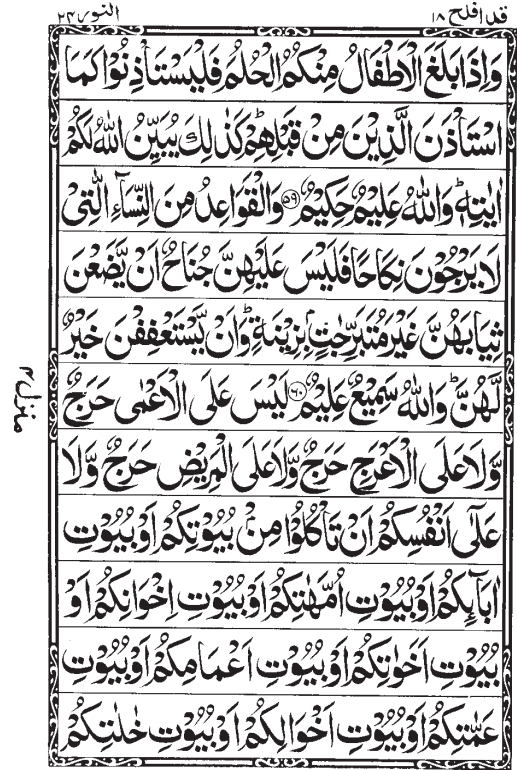 قد افلح ۱۸
النور ۲۴
وَاِذَا بَلَغَ الْاَطْفَالُ مِنْكُمُ الْحُلُمَ فَلْيَسْتَاْذِنُوْا كَمَا
اسْتَاْذَنَ الَّذِيْنَ مِنْ قَبْلِهِمْ ؕ كَذٰلِكَ يُبَيِّنُ اللّٰهُ لَكُمْ
اٰيٰتِهٖ ؕ وَاللّٰهُ عَلِيْمٌ حَكِيْمٌ ﴿۵۹﴾ وَالْقَوَاعِدُ مِنَ النِّسَآءِ الّٰتِىْ
لَا يَرْجُوْنَ نِكَاحًا فَلَيْسَ عَلَيْهِنَّ جُنَاحٌ اَنْ يَّضَعْنَ
ثِيَابَهُنَّ غَيْرَ مُتَبَرِّجٰتٍۭ بِزِيْنَةٍ ؕ وَاَنْ يَّسْتَعْفِفْنَ خَيْرٌ
لَّهُنَّ ؕ وَاللّٰهُ سَمِيْعٌ عَلِيْمٌ ﴿۶۰﴾ لَيْسَ عَلَى الْاَعْمٰى حَرَجٌ
وَّلَا عَلَى الْاَعْرَجِ حَرَجٌ وَّلَا عَلَى الْمَرِيْضِ حَرَجٌ وَّلَا
عَلٰٓى اَنْفُسِكُمْ اَنْ تَاْكُلُوْا مِنْۢ بُيُوْتِكُمْ اَوْ بُيُوْتِ
اٰبَآئِكُمْ اَوْ بُيُوْتِ اُمَّهٰتِكُمْ اَوْ بُيُوْتِ اِخْوَانِكُمْ اَوْ
بُيُوْتِ اَخَوٰتِكُمْ اَوْ بُيُوْتِ اَعْمَامِكُمْ اَوْ بُيُوْتِ
عَمّٰتِكُمْ اَوْ بُيُوْتِ اَخْوَالِكُمْ اَوْ بُيُوْتِ خٰلٰتِكُمْ
منزل ۴